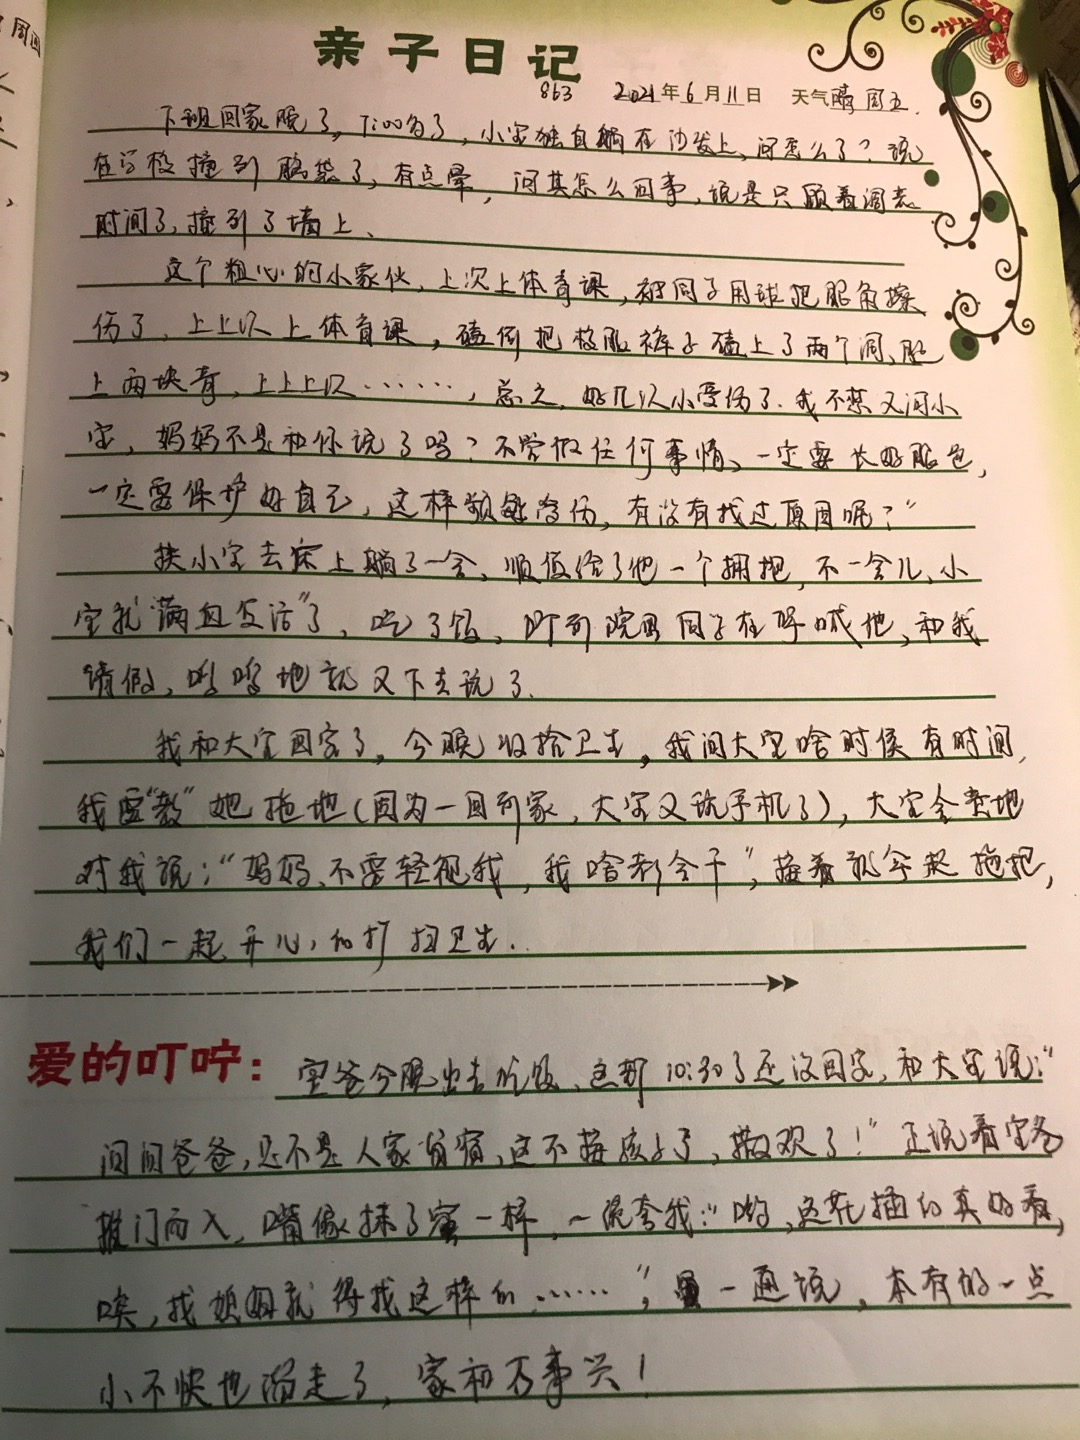 周四
亲子日记
863 2021年6月11日 天气晴 周五.
下班回家晚了, 7:00多了, 小宝独自躺在沙发上, 问怎么了? 说
在学校撞到脑袋了, 有点晕, 问其怎么回事, 说是只顾看
时间了, 撞到了墙上、
这个粗心的小家伙, 上次上体育课, 被同学用球把眼角擦
伤了, 上上次上体育课, 磕倒把校服裤子磕上了两个洞、腿
上两块青, 上上上次……, 总之, 好几次小受伤了. 我不禁又问小
宝, 妈妈不是和你说了吗? 不管做任何事情、一定要长好眼色,
一定要保护好自己, 这样频繁受伤, 有没有找过原因呢?"
扶小宝去床上躺了一会、顺便给了他一个拥抱, 不一会儿、小
宝就"满血复活"了, 吃了饭, 听到院里同学在呼喊他, 和我
请假, 噔噔地就又下去玩了.
我和大宝回家了, 今晚收拾卫生, 我问大宝啥时候有时间,
我要"教"她拖地(因为一回到家, 大宝又玩手机了), 大宝会意地
对我说:"妈妈、不要轻视我, 我啥都会干", 接着就拿起拖把,
我们一起开心的打扫卫生.
爱的叮咛: 宝爸今晚出去吃饭、这都10:30了还没回家, 和大宝说:"
问问爸爸, 是不是人家宿, 这不接孩子了, 撒欢了!" 正说着宝爸
推门而入, 嘴像抹了蜜一样, 一派夸我:"哟, 这花插的真好看,
唉, 找媳妇就得找这样的……", 一通说, 本有的一点
小不快也溜走了, 家和万事兴!